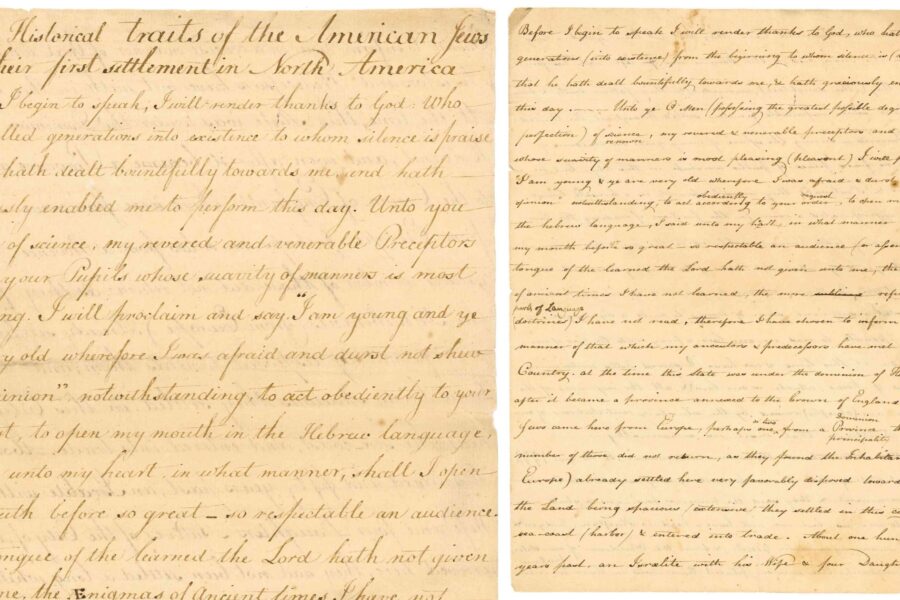 Historical traits of the American Jews
their first settlement in North America
I begin to speak, I will render thanks to God: Who
lled generations into existence to whom silence is praise
hath dealt bountifully towards me, and hath
usly enabled me to perform this day. Unto you
of science, my revered and venerable Preceptors
your Pupils whose suavity of manners is most
ng. I will proclaim and say "I am young and ye
ry old wherefore I was afraid and durst not shew
inion" notwithstanding, to act obediently to your
t, to open my mouth in the Hebrew language,
unto my heart, in what manner, shall I open
uth before so great – so respectable an audience.
ongue of the learned the Lord hath not given
me, the Enigmas of Ancient times I have not
Before I begin to speak I will render thanks to God, who hat
generations (into existence) from the beginning to whom silence is
that he hath dealt bountifully towards me, & hath graciously en
this day. Unto ye O Men (possessing the greatest possible degr
perfection) of science, my revered & venerable preceptors and
whose suavity of manners is most pleasing (pleasant) I will p
I am young & ye are very old wherefore I was afraid & durst
obediently request
opinion notwithstanding, to act according to your order, to open m
the hebrew language, I said unto my heart, in what manner
my mouth before so great – so respectable an audience (or assem
tongue of the learned the Lord hath not given unto me, the
of ancient times I have not learned, the more sublime refi
parts of Language
doctrines) I have not read, therefore I have chosen to inform
manner of that which my ancestors & predecessors have met
Country. at the time this state was under the dominion of H
after it became a province annexed to the Crown of England
Dominion
Jews came here from Europe, perhaps one, from a Province
or two
principality
number of those did not return, as they found the Inhabita
Europe) already settled here very favorably disposed toward
the Land being spacious extensive they settled in this c
sea-coast (harbor) & entered into trade. About one hun
years past, an Israelite with his Wife & four Daugh